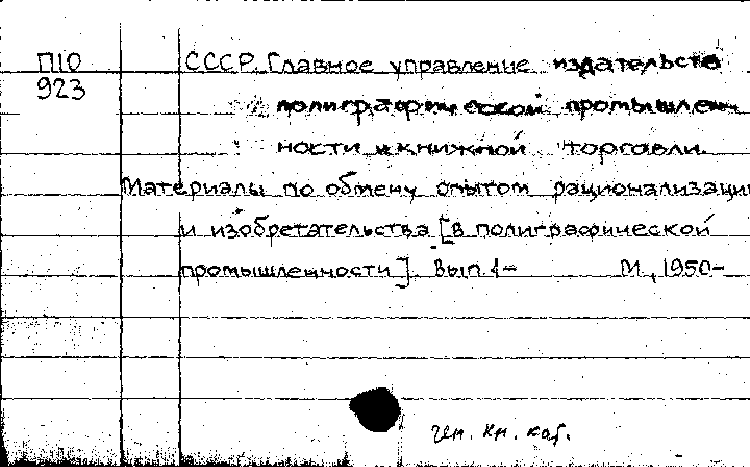 П10
923
СССР. Главное управление издательств
полиграфической промышлен-
ности и книжной торговли.
Материалы по обмену опытом рационализации
и изобретательства [в полиграфической
промышленности]. Вып. 1- М., 1950-
ген. кн. кат.